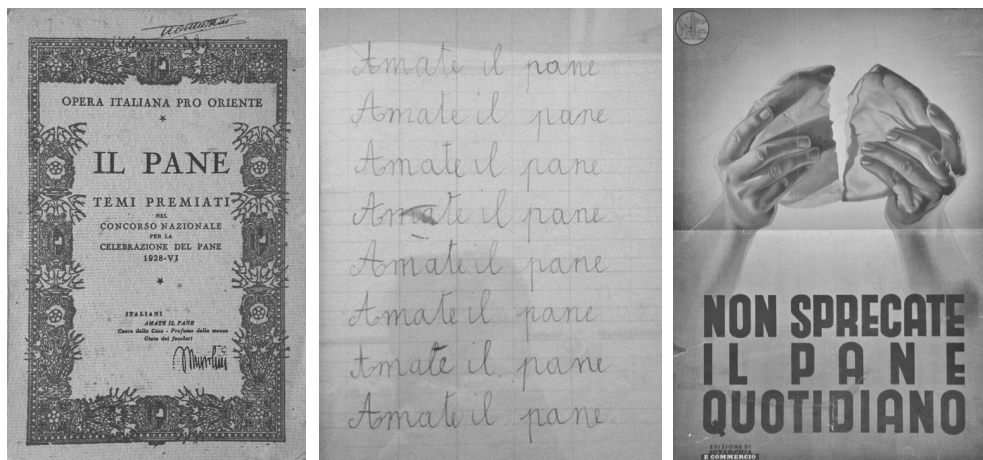 OPERA ITALIANA PRO ORIENTE
IL PANE
TEMI PREMIATI
NEL
CONCORSO NAZIONALE
PER LA
CELEBRAZIONE DEL PANE
1928-VI
ITALIANI
AMATE IL PANE
Cuore della Casa - Profumo della mensa
Gioia dei focolari
Mussolini
Amate il pane
Amate il pane
Amate il pane
Amate il pane
Amate il pane
Amate il pane
Amate il pane
Amate il pane
NON SPRECATE
IL PANE
QUOTIDIANO
EDIZIONE DI
AUTARCHIA
E COMMERCIO